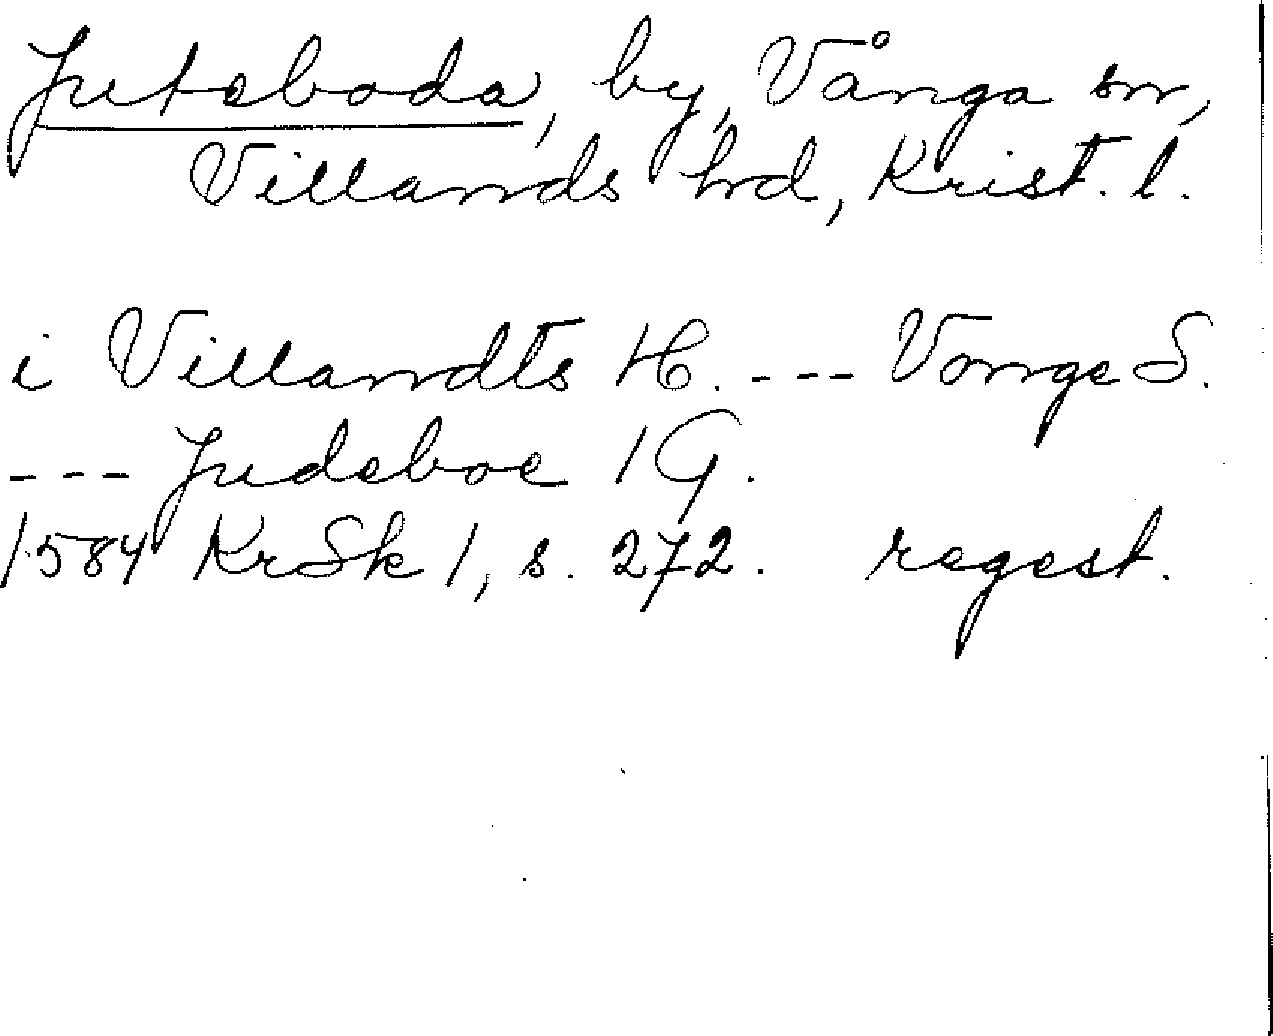 Juteboda, by, Vånga sn,
Villands hd, Krist. l.
i Villandts H. --- Vonge S.
--- Judeboe 1 G.
1584 KrSk 1, s. 272. regest.